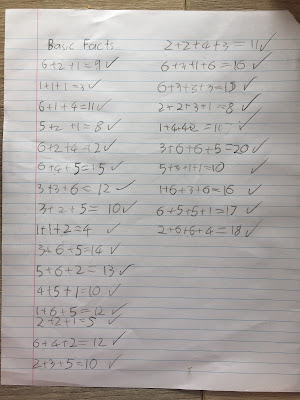 Basic Facts
6+2+1=9 ✓
1+1+1=3 ✓
6+1+4=11 ✓
5+2+1=8 ✓
6+2+4=12 ✓
6+4+5=15 ✓
3+3+6=12 ✓
3+2+5=10 ✓
1+1+2=4 ✓
3+6+5=14 ✓
5+6+2=13 ✓
4+5+1=10 ✓
1+6+5=12 ✓
2+2+1=5 ✓
6+4+2=12 ✓
2+3+5=10 ✓
2+2+4+3=11 ✓
6+3+1+6=16 ✓
2+2+3+1=8 ✓
3+6+6+5=20 ✓
5+3+1+1=10 ✓
1+6+3+6=16 ✓
6+5+5+1=17 ✓
2+6+6+4=18 ✓